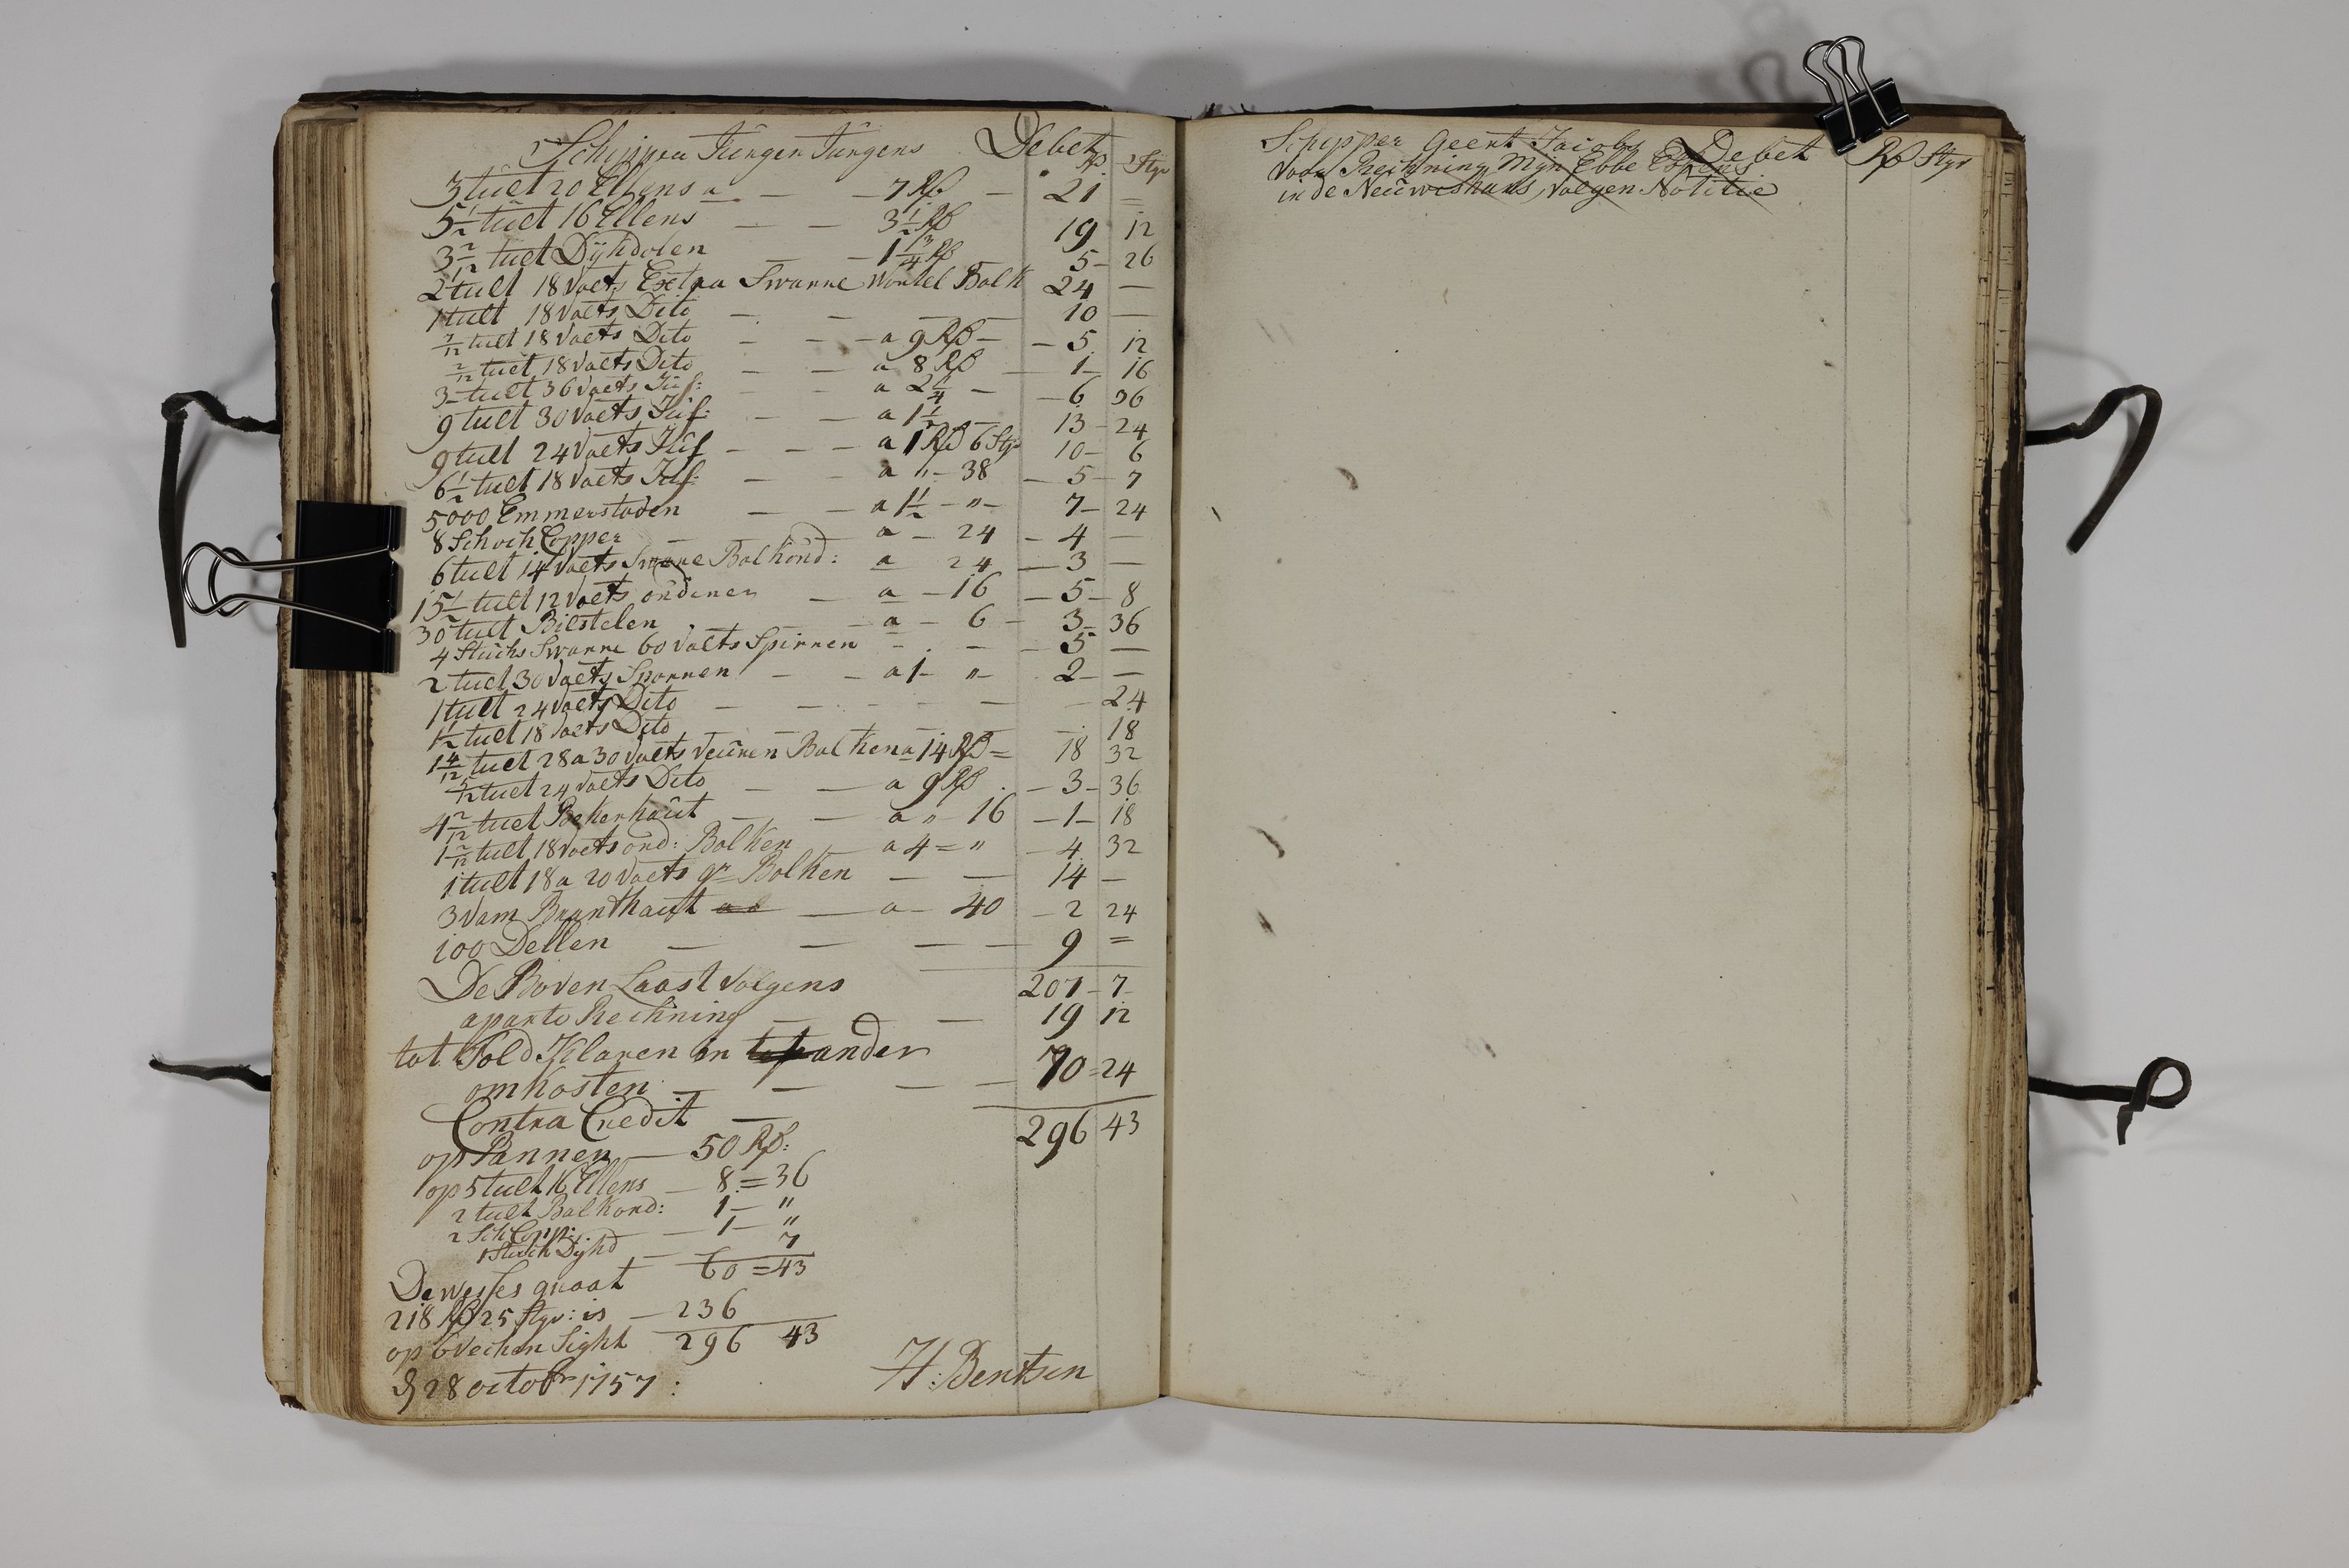 Schipper Jürgen Jürgens Debet Rß Styr
3 tult 20 Ellens a — — 7 Rß — 21 =
5½ tult 16 Ellens — — 3½ Rß 19 12
3 2/12 tult Dÿkdolen — 1¾ Rß 5 - 26
2 tult 18 Voets Extra Swarre Wortel Balk 24 —
1 tult 18 Voets Dito — — — — 10 —
7/12 tult 18 Voets Dito — — a 9 Rß — 5 12
2/12 tult 18 Voets Dito — — a 8 Rß — 1 - 16
3 tult 36 Voets Juf: — a 2¼ — 6 36
9 tult 30 Voets Juf: — — a 1½ — 13 - 24
9 tult 24 Voets Juf — — — a 1 Rß 6 Styr 10 - 6
6½ tult 18 Voets Juf: — — a " - 38 — 5 - 7
5000 Emmerstaven — — a 1½ - " - 7 - 24
8 Schock Copper — — a — 24 — 4 —
6 tult 14 Voets Swarre Balkond: a 24 — 3 —
15½ tult 12 Voets ordiner — a — 16 — 5 - 8
30 tult Bilstelen — a — 6 — 3 - 36
4 Stucks Swarre 60 Voets Spirren — — — 5 —
2 tult 30 Voets Sparren — — a 1 - " - 2 - —
1 tult 24 Voets Dito — — — — — 24
1½ tult 18 Voets Dito — — — 18
1 4/12 tult 28 a 30 Voets Veuren Balken a 14 Rß = 18 32
5/12 tult 24 Voets Dito — — a 9 Rß — 3 - 36
4 2/12 tult Bekenhaut — — a " 16 — 1 - 18
1 2/12 tult 18 Voets ord: Balken — a 4 = " — 4 32
1 tult 18 a 20 Voets gr Balken — — 14 —
3 Vam Branthaut — a — 40 — 2 24
100 Dellen — — — — 9 =
De Boven Laast Volgens 207 - 7
aparte Rechning — — 19 12
tot Told Klaren in ander
omkosten — — — — 70 = 24
Contra Credit — 296 43
op Pannen — 50 Rß:
op 5 tult 16 Ellens — 8 = 36
2 tult Balkond: 1 — "
2 Sch Copp: — 1 — "
1 Stück Dÿkd — 7
60 = 43
De Wesses groot
218 Rß 25 Styr: is — 236
op 6 Vecken Sight 296 43
28 octobr 1757: H: Bentsen
Schipper Geert Jacobs Debet Rß Styr
Voor Rechning Mÿn Ebbe Ebkens
in de Neuweshans, Volgen Notitie